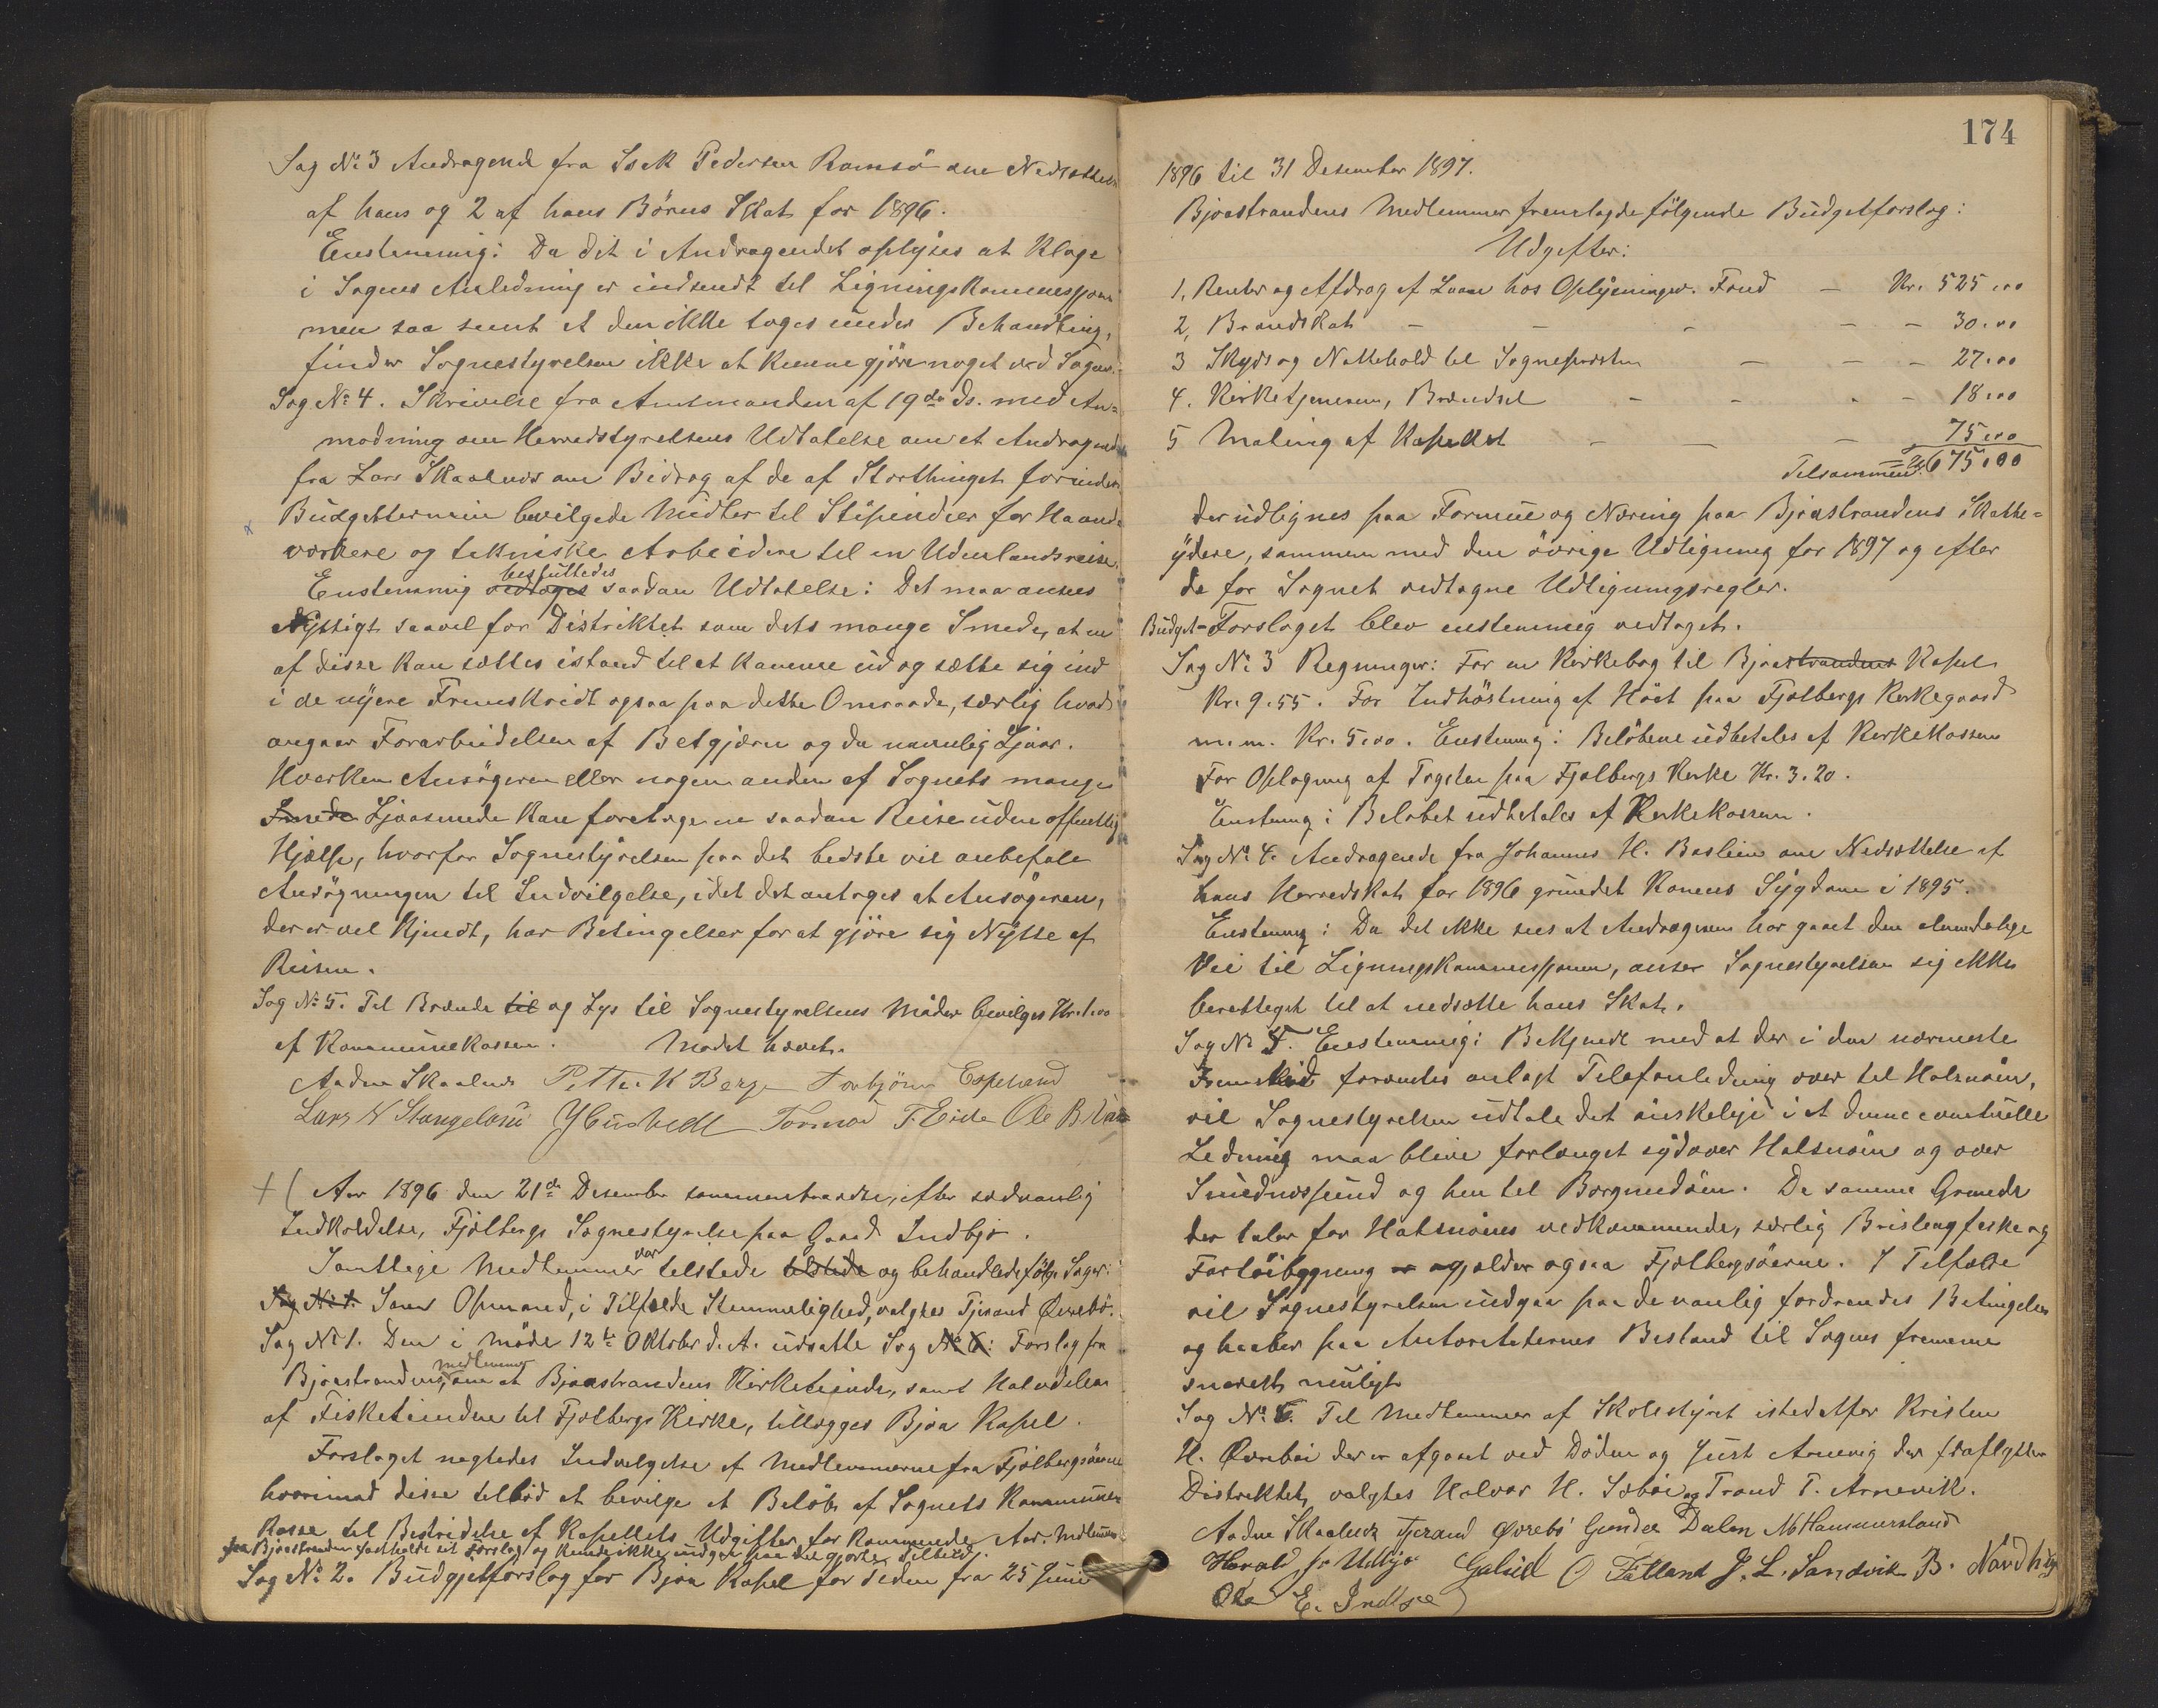 Sag No 3 Andragende fra Isek Pedersen Ramsö om Nedsættelse
af hans og 2 af hans Börns Skat for 1896.
Enstemmig: Da det i Andragendet oplyses at Klage
i Sagens Anledning er indsendt til Ligningskommissjonen
men saa sent at den ikke toges under Behandling,
finder Sognestyrelsen ikke at kunne gjöre noget ved Sagen.
Sag No 4. Skrivelse fra Amtmanden af 19de ds. med An=
modning om Herredstyrelsens Udtalelse om et Andragende
fra Lars Skaalnes om Bidrag af de af Storthinget for inden
Budgetterminen bevilgede Midler til Stipendier for Haand-
værkere og tekniske Arbeidere til en Udenlandsreise.
Enstemmig vedtoges besluttedes saadan Udtalelse: Det maa ansees
nyttigt saavel for Distriktet som dets mange Smede, at en
af disse kan sættes istand til at komme ud og sætte sig ind
i de nyere Fremskridt ogsaa paa dette Omraade, særlig hvad
angaar Forarbeidelsen af Betgjærn og da navnlig Ljaar.
Hverken Ansögeren eller nogen anden af Sognets mange
Smede Ljaasmede kan foretage en saadan Reise uden offentlig
Hjælp, hvorfor Sognestyrelsen paa det bedste vil anbefale
Ansögningen til Indvilgelse, idet det antages at Ansögeren,
der er vel kjendt, har Betingelser for at gjöre sig Nytte af
Reisen.
Sag No 5. Til Brænde til og Lys til Sognestyrelsens Möder bevilges Kr. 1.00
af Kommunekassen. Mödet hævet.
Aadne Skaalnes Petter K Berge Torbjörn Espeland
Lars N Stangeland Tormod T. Eide Ole B.
+ ( Aar 1896 den 21de Desember sammentraadte, efter sædvanlig
Indkaldelse, Fjelbergs Sognestyrelse paa Gaard Indbjo.
Samtlige Medlemmer var tilstede tilstede og behandlede fölge Sager:
Sag No 1. Som Opmand, i Tilfælde Stemmelighed, valgtes Tjerand Øvrebö.
Sag No 1. Den i Möde 12te Oktober d. A. udsatte Sag No 6: Forslag fra
Bjoastrandens medlemmer, om at Bjoastrandens Kirketiende, samt Halvdelen
af Fisketienden til Fjelbergs Kirke, tillægges Bjoa Kapel.
Forslaget negtedes Indvilgelse af Medlemmerne fra Fjelbergsöerne
hvorimod disse tilböd at bevilge et Belöb af Sognets Kommune
Kasse til Bestridelse af Kapellets Udgifter for kommende Aar. Medlemmer
fra Bjoastranden fastholdt sit Forslag og kunde ikke indgaa paa det gjorte Tilbud.
Sag No 2. Budgjetforslag for Bjoa Kapel for Tiden fra 25 Juni
174
1896 til 31 Desember 1897.
Bjoastrandens Medlemmer fremlagde fölgende Budgetforslag:
Udgifter:
1, Renter og Afdrag af Laan hos Oplysningsv. Fond – Kr. 525.00
2, Brandskat – – – – – 30.00
3 Skyds og Nattehold til Sognepresten – – – 27.00
4. Kirketjeneren, Brændsel – – – – 18.00
5 Maling af Kapellet – – – 75.00
Tilsammen = Kr 675.00
der udlignes paa Formue og Næring paa Bjoastrandens Skatte=
ydere, sammen med den övrige Udligning for 1897 og efter
de for Sognet vedtagne Udligningsregler.
Budget-Forslaget blev enstemmig vedtaget.
Sag No 3 Regninger: For en Kirkebog til Bjoastrandens Kapel
Kr. 9.55. For Indhöstning af Höet paa Fjelbergs Kirkegaard
m. m. Kr. 5.00. Enstemmig: Belöbene udbetales af Kirkekassen
For Oplagning af Tagsten paa Fjelbergs Kirke Kr. 3.20.
Enstemmig: Belöbet udbetales af Kirkekassen.
Sag No 4. Andragende fra Johannes H. Baslien om Nedsættelse af
hans Herredskat for 1896 grundet Konens Sygdom i 1895.
Enstemmig: Da det ikke sees at Andrageren har gaaet den almindelige
Vei til Ligningskommissjonen, anser Sognestyrelsen sig ikke
berettiget til at nedsætte hans Skat.
Sag No 5. Enstemmig: Bekjendt med at der i den nærmeste
Fremtid forventes anlagt Telefonledning over til Halsnöin,
vil Sognestyrelsen udtale det önskelige i at denne eventuelle
Ledning maa blive forlænget sydover Halsnöin og over
Smednæssund og hen til Borgundöen. De samme Grunde
der taler for Halsnöens vedkommende, særlig Brislingfiske og
Fartöibygning er gjælder ogsaa Fjelbergsöerne. I Tilfælde
vil Sognestyrelsen indgaa paa de vanlig fordrendes Betingelser
og haaber paa Autoriteternes Bistand til Sagens fremme
snarest muligt
Sag No 6. Til Medlemmer af Skolestyret istedetfor Kristen
H. Øvreböi der er afgaaet ved Döden og Just Arnevig der fraflytter
Distriktet, valgtes Halvor H. Seböi og Trond T. Arnevik.
Aadne Skaalnes Tjerand Øvrebö Gunder Dalen N Hammersland
Harald Jr Utbjo Galtel O Fatland J. L. Sandvik B. Nordhug
Ole E. Indbjo